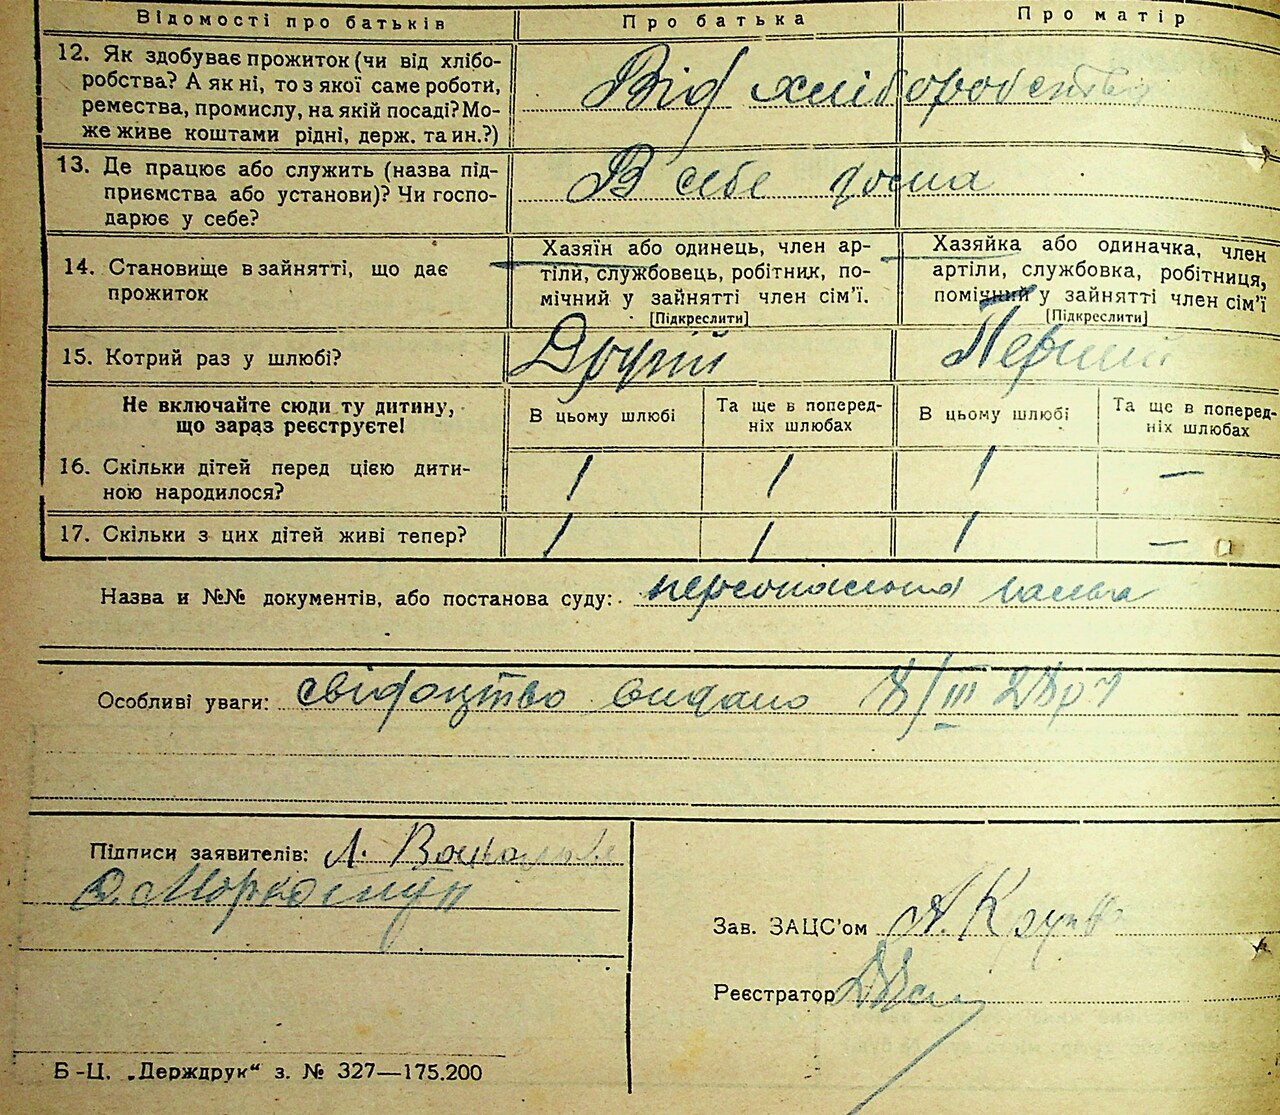 Відомості про батьків Про батька Про матір
12. Як здобуває прожиток (чи від хлібо-
робства? А як ні, то з якої саме роботи,
ремества, промислу, на якій посаді? Мо-
же живе коштами рідні, держ. та ин.?)
Від хліборобства
13. Де працює або служить (назва під-
приємства або установи)? Чи госпо-
дарює у себе?
В себе дома
14. Становище в зайнятті, що дає
прожиток
Хазяїн або одинець, член ар-
тіли, службовець, робітник, по-
мічний у зайнятті член сім’ї.
[Підкреслити]
Хазяйка або одиначка, член
артіли, службовка, робітниця,
помічний у зайнятті член сім’ї
[Підкреслити]
15. Котрий раз у шлюбі? Другий Перший
Не включайте сюди ту дитину,
що зараз реєструєте!
В цьому шлюбі
Та ще в поперед-
ніх шлюбах
В цьому шлюбі
Та ще в поперед-
ніх шлюбах
16. Скільки дітей перед цією дити-
ною народилося?
1 1 1 —
17. Скільки з цих дітей живі тепер? 1 1 1 —
Назва и №№ документів, або постанова суду: персональна
Особливі уваги: свідоцтво видано 8/III 28 р
Підписи заявителів: Л.
Зав. ЗАЦС’ом А.
Реєстратор
Б-Ц. „Держдрук“ з. № 327—175.200